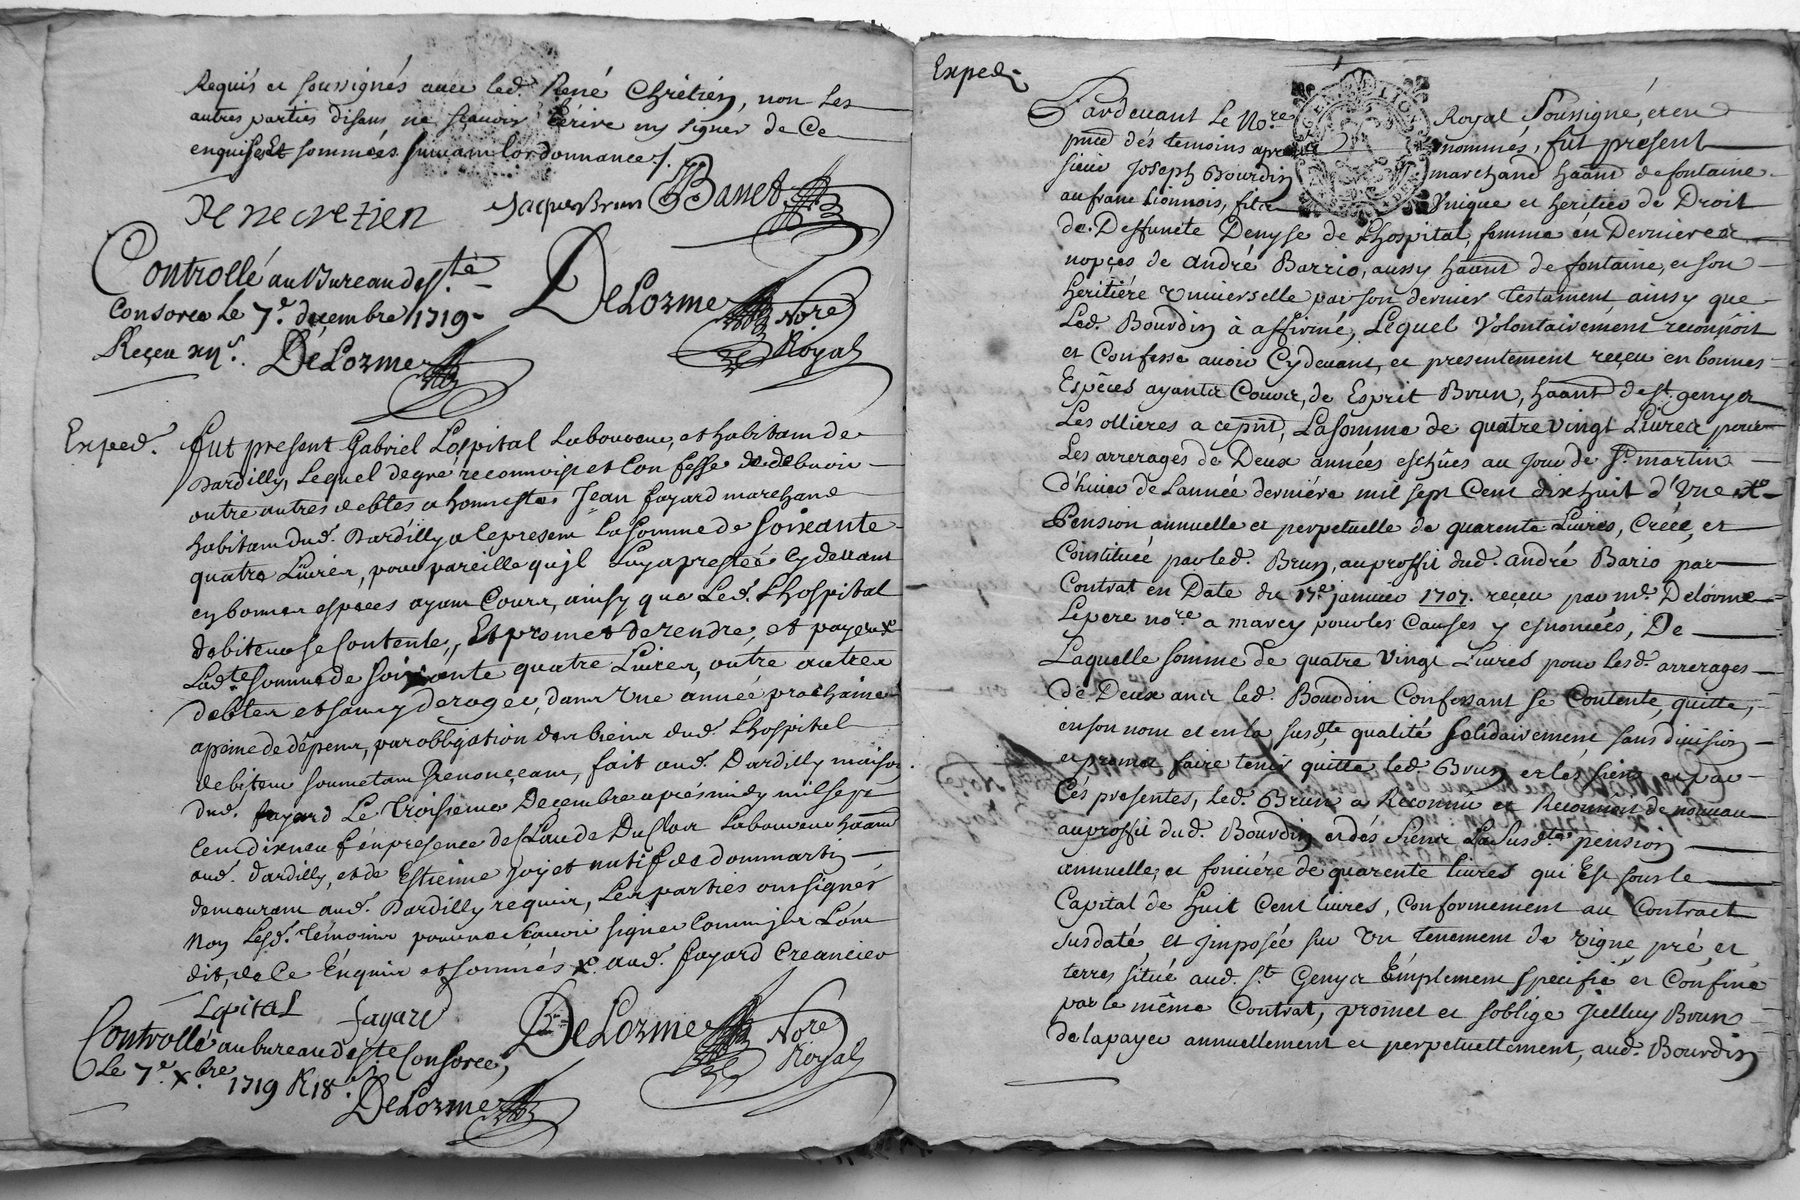 Requis et soussignés avec led. René Chrétien, non les
autres parties disans ne sçavoir Eérire ny signer de Ce
enquiser Et sommées suivant lordonnance /.
Renecretien Jacques Brun Banet
Controllé au Bureau de St.te
Consorce Le 7e. decembre 1719
Reçeu xii s. DeLorme
DeLorme No.re
Royal
Exped. fut present Gabriel Lospital Laboureur, et habitam de
Dardilly, Lequel de gré reconnoist et Confesse de debvoir
outre autres debtes a honnestes Jean fayard marchand
habitam dud. Dardilly a le present La somme de soixante
quatre Livres, pour pareille quil Luy a prestée Cydevant
en bonnes especes ayam Cours, ainsy que Led. Lhospital
debiteur se contente, Et promet de rendre, et payer
Lad.te somme de soixante quatre Livres, outre autres
debtes et sans y deroger, dans Une année prochaine
a peine de dépens, par obligation des biens dud. Lhospital
debiteur soumetam Renonçeam, fait aud. Dardilly maison
dud. fayard Le troisieme Decembre aprésmidy mil sept
Cent dixneuf én presence de Claude Duflor Laboureur haant
aud. dardilly, et de Estienne Joyet natif de dommartin
demeuram aud. Dardilly requis, Les parties ont signés
Non Lesd. témoins pour ne sçavoir signer Comm jls L'ont
dit, de Ce Enquis et sommés aud. fayard Creancier
Lopital fayard
Controllé au bureau de Ste Consorce,
Le 7e. xbre 1719 R 18 s.
DeLorme
DeLorme No.re
Royal
Exped.
Pardevant Le No.re Royal Soussigné, et en
pnce dés temoins apres nommés, fut présent
sieur Joseph Bourdin marchand haant de fontaine
au franc Lionnois, fils Unique et heritier de Droit
de Deffuncte Denyse de Lhospital, femme én Dernieres
nopçes de André Barrio, aussy haant de fontaine, et son
heritiére Universelle par son dernier testament ainsy que
Led. Bourdin à affirmé, Lequel Volontairément reconnoit
et Confesse avoir Cydevant, et presentement reçeu en bonnes
Espéces ayants Cours, de Esprit Brun, haant de st. genys
Les ollieres a ce pnt, La somme de quatre vingt Livres pour
Les arrerages de Deux années eschûes au Jour de St. martin
d'hiver de L'année derniére mil sept Cent dixhuit d'Une
Pension annuelle et perpetuelle de quarente Livres, Creée, et
Constituée par led. Brun, au proffit dud. andré Bario par
Contrat en Date du 17e. janvier 1707. reçeu par me. Delorme
Le pere no.re a marcy pour les Causes y esnoncées, De
Laquelle somme de quatre vingt Livres pour lesd. arrerages
de Deux ans led. Bourdin Confessant se Contente, quitte,
en son nom et en la susd.te qualité solidairément sans division
et promet faire tenir quitte led. Brun et les siens et par
Cés presentes, led. Brun a Reconnu et Reconnoit de nouveau
au proffit dud. Bourdin et dés siens La susd.te pension
annuelle, et fonciére de quarente livres qui Est sous le
Capital de huit Cent livres, Conformement au Contract
susdaté, et jmposée sur Un tenement de vigne pré, et
terres situé aud. st Genys Emplement specifié et Confiné
par le même Contrat, promet et soblige Jcelluy Brun
de la payer annuellement et perpetuellement, aud. Bourdin